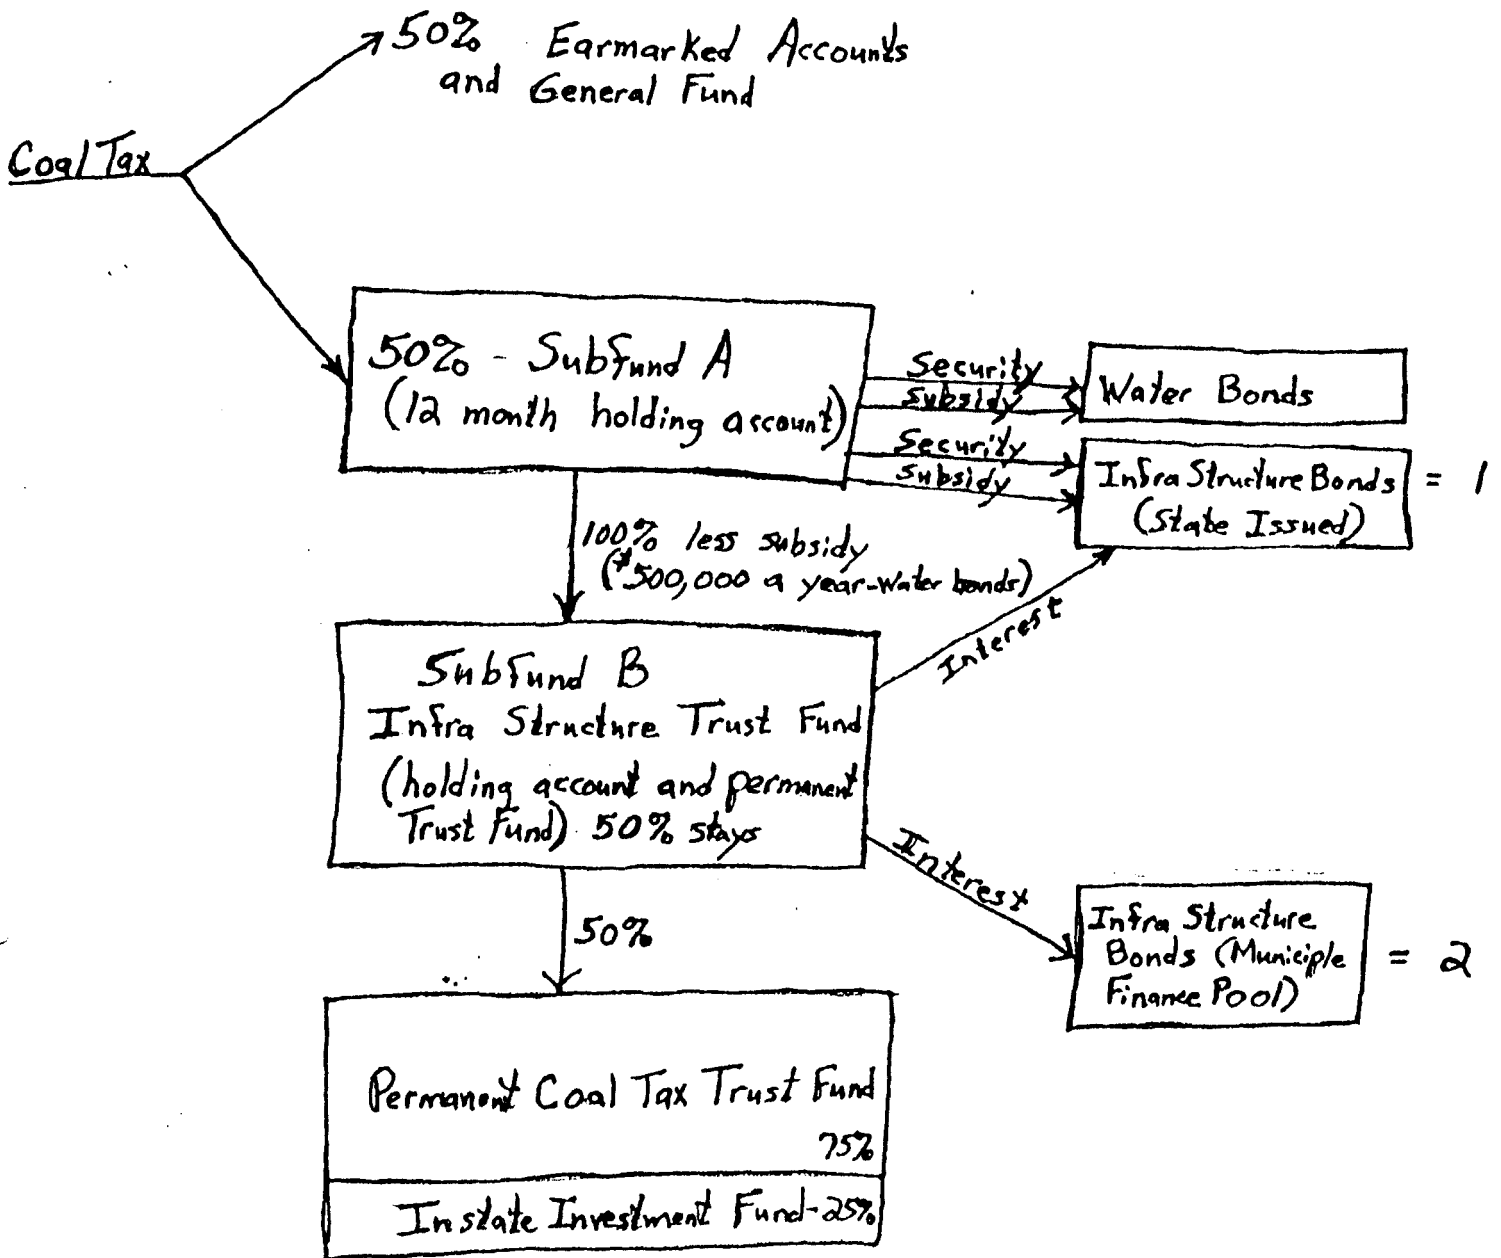 50% Earmarked Accounts
and General Fund
Coal Tax
50% - Subfund A
(12 month holding account)
Security
Subsidy
Water Bonds
Security
Subsidy
Infra Structure Bonds
(State Issued)
= 1
100% less subsidy
($500,000 a year-Water bonds)
Interest
Subfund B
Infra Structure Trust Fund
(holding account and permanent
Trust Fund) 50% stays
Interest
Infra Structure
Bonds (Municiple
Finance Pool)
= 2
50%
Permanent Coal Tax Trust Fund
75%
Instate Investment Fund-25%